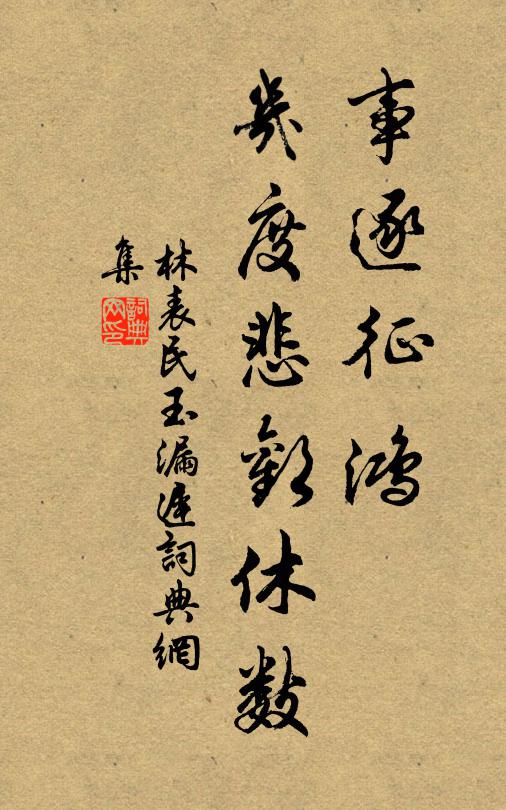 事逐征鸿
幾度悲歡休數
林表民玉漏遲詞典網
集
詞典網印